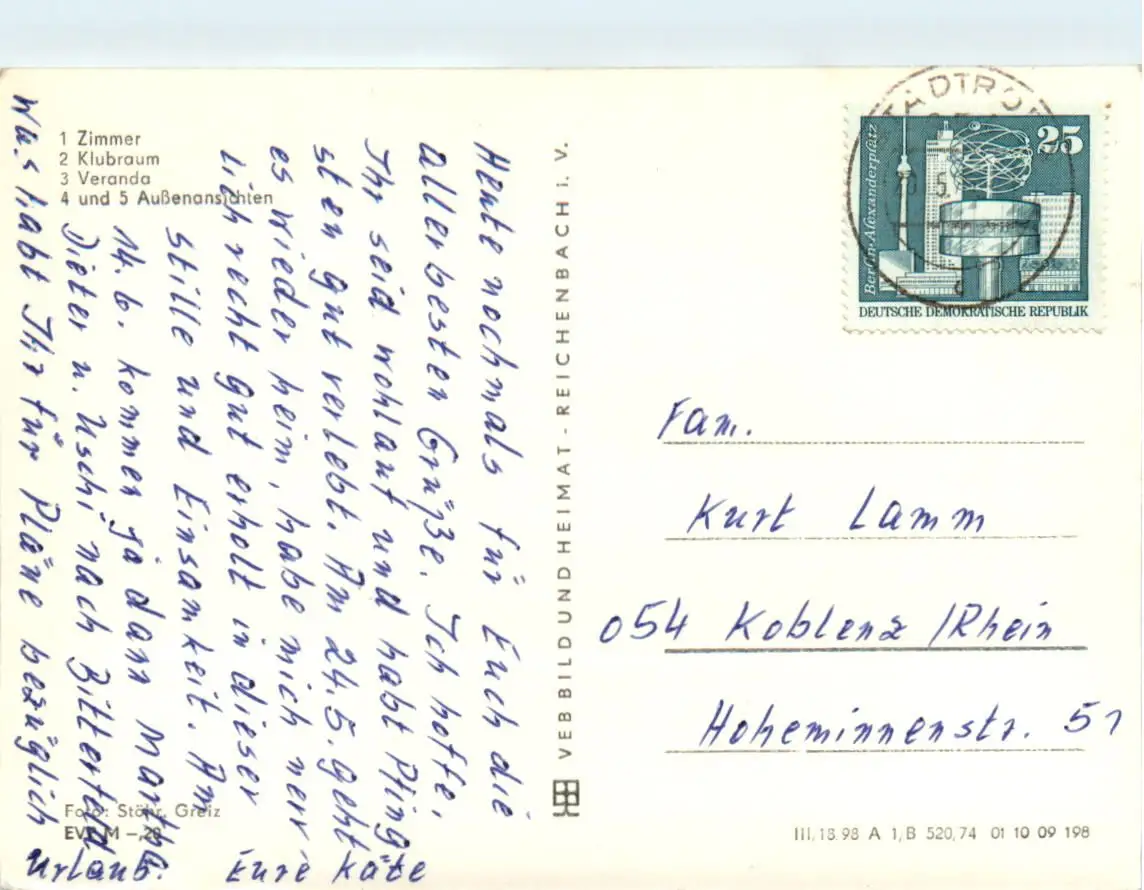 1 Zimmer
2 Klubraum
3 Veranda
4 und 5 Außenansichten
Heute nochmals für Euch die
allerbesten Grüße. Ich hoffe,
Ihr seid wohlauf und habt Pfing
sten gut verlebt. Am 24.5. geht
es wieder heim, habe mich nerv
lich recht gut erholt in dieser
Stille und Einsamkeit. Am
14.6. kommen ja dann Martha
Dieter u. Uschi nach Bitterfeld
Was habt Ihr für Pläne bezüglich
Urlaub. Eure Käte
Foto: Stöhr, Greiz
EVP M –,20
VEB BILD UND HEIMAT - REICHENBACH i. V.
25
Berlin-Alexanderplatz
DEUTSCHE DEMOKRATISCHE REPUBLIK
Fam.
Kurt Lamm
054 Koblenz /Rhein
Hoheminnenstr. 51
III, 18.98 A 1, B 520,74 01 10 09 198